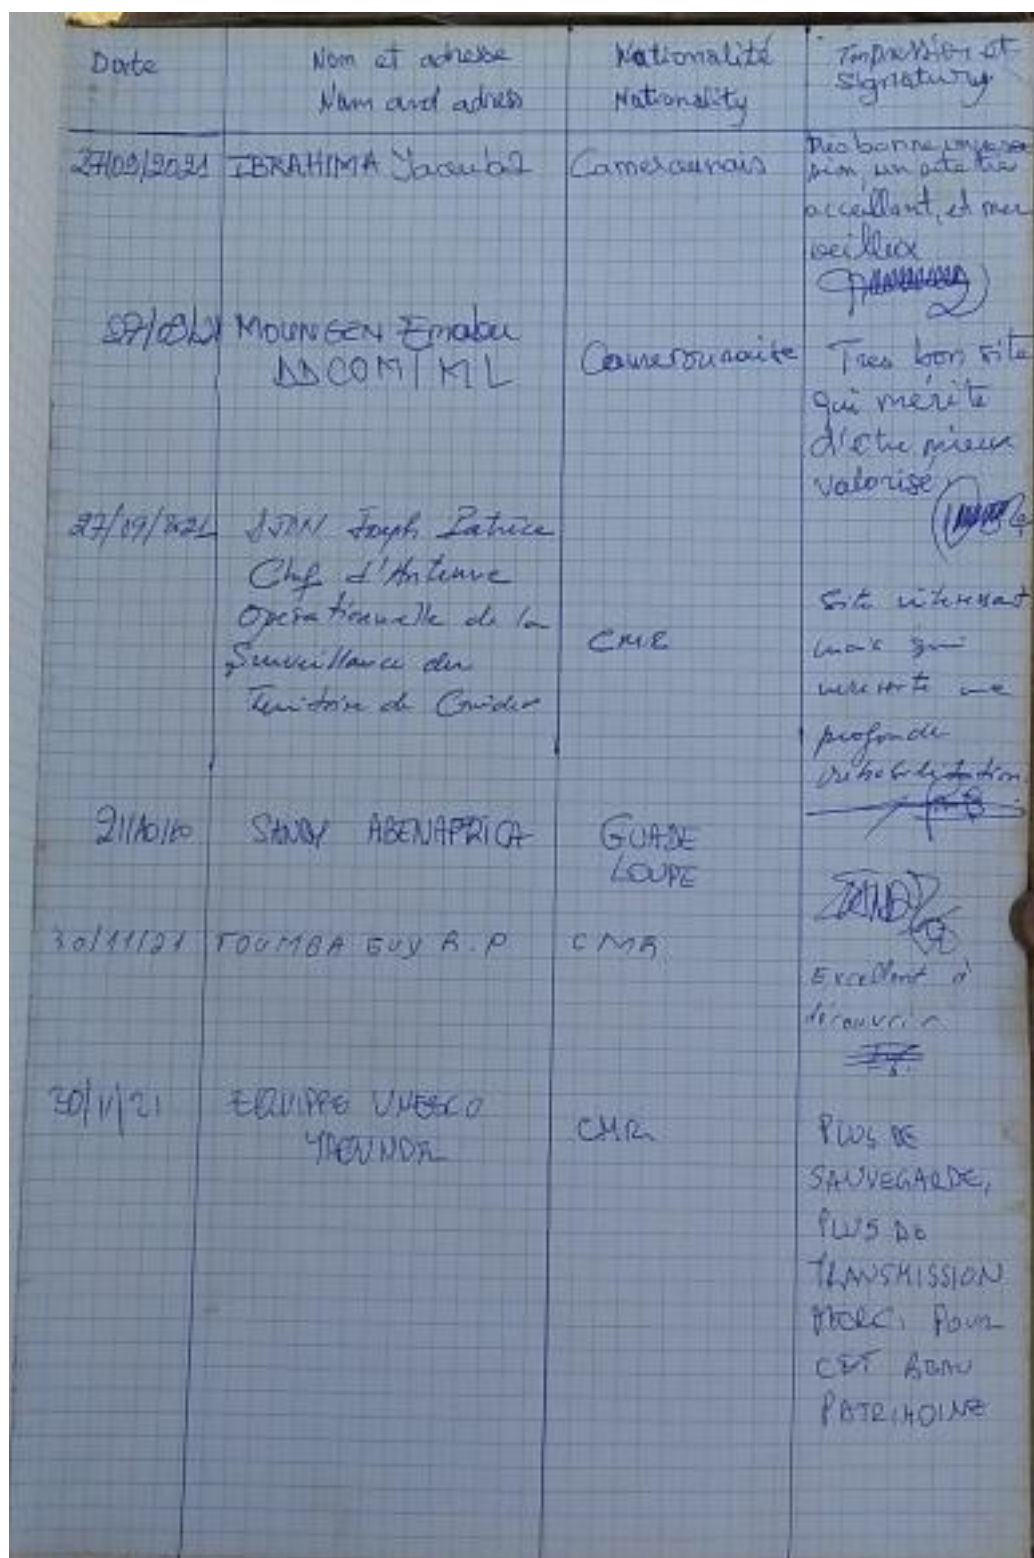 Date
Nom et adresse
Nam and adress
Nationalité
Nationality
Impression et
signature
27/09/2021
IBRAHIMA Yacouba
Camerounais
Très bonne impres
sion, un site très
acceillant, et mer
veillex
27/09/21
MOUNGEN
DDCOM/ML
Camerounaise
Tres bon site
qui mérite
d'être mieux
valorisé
27/09/2021
Joseph Patrice
Chef d'Antenne
Opérationnelle de la
Surveillance du
Territoire de Guider
CMR
Site intéressant
mais qui
nécessite une
profonde
réhabilitation
SANDY ABENAFRICA
GUADE
LOUPE
SANDY
30/11/21
TOUMBA GUY R.P
CMR
Excellent à
découvrir
30/11/21
EQUIPPE UNESCO
YAOUNDE
CMR
PLUS DE
SAUVEGARDE,
PLUS DE
TRANSMISSION
MERCI POUR
CET BEAU
PATRIMOINE